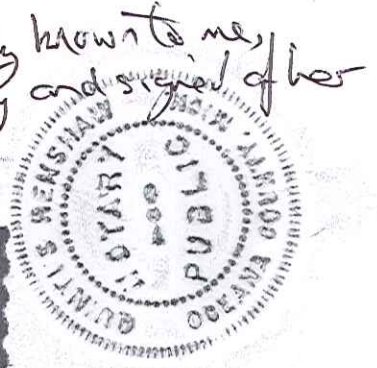 known to me,
and signed of her
RENSHAW
NOTARY PUBLIC
OCEANA COUNTY, MICH.